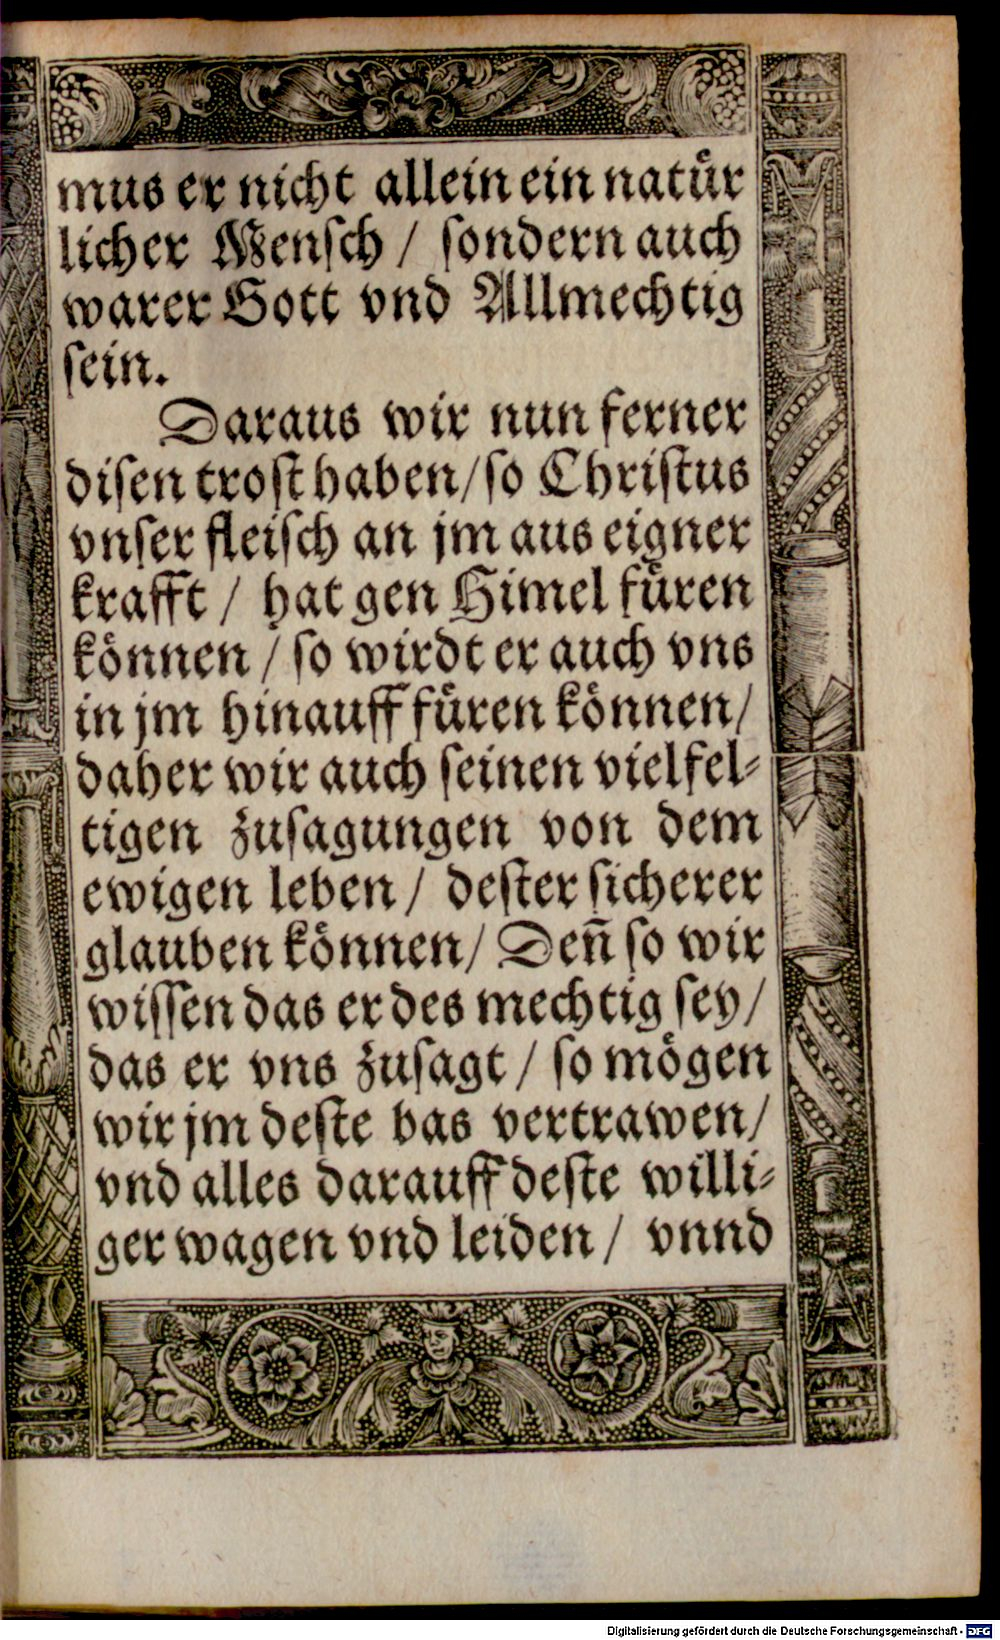 mus er nicht allein ein natuͤr
licher Mensch / sondern auch
warer Gott vnd Allmechtig
sein.
Daraus wir nun ferner
disen trost haben/so Christus
vnser fleisch an jm aus eigner
krafft / hat gen Himel fuͤren
koͤnnen / so wirdt er auch vns
in jm hinauff fuͤren koͤnnen/
daher wir auch seinen vielfel-
tigen zusagungen von dem
ewigen leben / dester sicherer
glauben koͤnnen/ Den̄ so wir
wissen das er des mechtig sey/
das er vns zusagt / so moͤgen
wir jm deste bas vertrawen/
vnd alles darauff deste willi-
ger wagen vnd leiden / vnnd
Digitalisierung gefördert durch die Deutsche Forschungsgemeinschaft - DFG